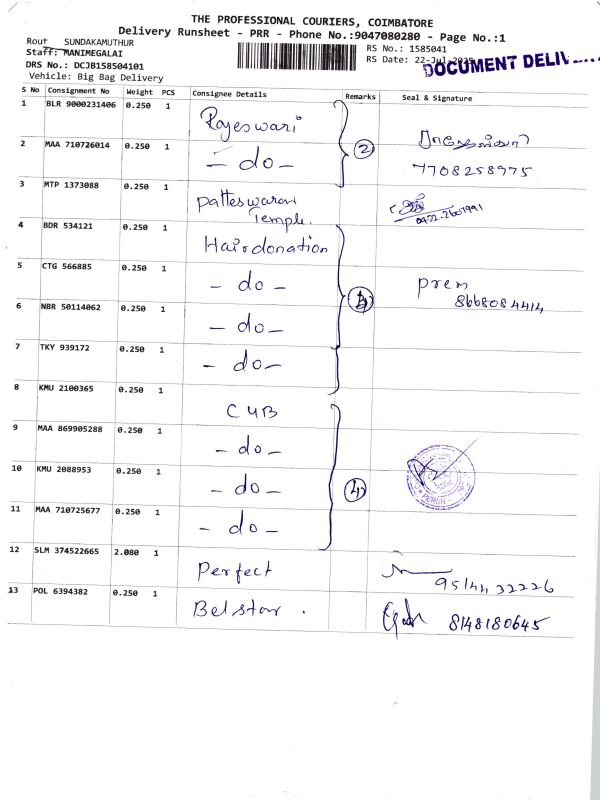 THE PROFESSIONAL COURIERS, COIMBATORE
Delivery Runsheet - PRR - Phone No.:9047080280 - Page No.:1
Rout SUNDAKAMUTHUR
RS No.: 1585041
Staff: MANIMEGALAI
RS Date: 22-Jul-2025
DOCUMENT DELIV
DRS No.: DCJB158504101
Vehicle: Big Bag Delivery
S No Consignment No Weight PCS Consignee Details Remarks Seal & Signature
1 BLR 9000231406 0.250 1 Rajeswari
2 MAA 710726014 0.250 1 - do - 2 7708258975
3 MTP 1373088 0.250 1 Patteswarar Temple. 0422-2607991
4 BDR 534121 0.250 1 Hairdonation
5 CTG 566885 0.250 1 - do - Prem 8668084414
6 NBR 50114062 0.250 1 - do -
7 TKY 939172 0.250 1 - do -
8 KMU 2100365 0.250 1 CUB
9 MAA 869905288 0.250 1 - do -
10 KMU 2088953 0.250 1 - do - 4
11 MAA 710725677 0.250 1 - do -
12 SLM 374522665 2.080 1 Perfect 9514432226
13 POL 6394382 0.250 1 Belstar . 8148180645